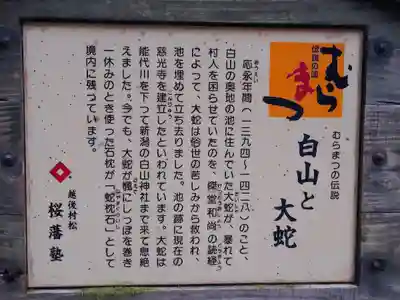 伝説の里
むらまつ
むらまつの伝説
白山と大蛇
応永年間(一三九四〜一四二八)のこと、
白山の奥地の池に住んでいた大蛇が、暴れて
村人を困らせていたのを、傑堂和尚の読経
によって、大蛇は俗世の苦しみから救われ、
池を埋めて立ち去りました。池の跡に現在の
慈光寺を建立したといわれています。大蛇は
能代川を下って新潟の白山神社まで来て息絶
えました。今でも、大蛇が楓にしっぽを巻き
一休みのとき使った石枕が「蛇枕石」として
境内に残っています。
越後村松
桜藩塾